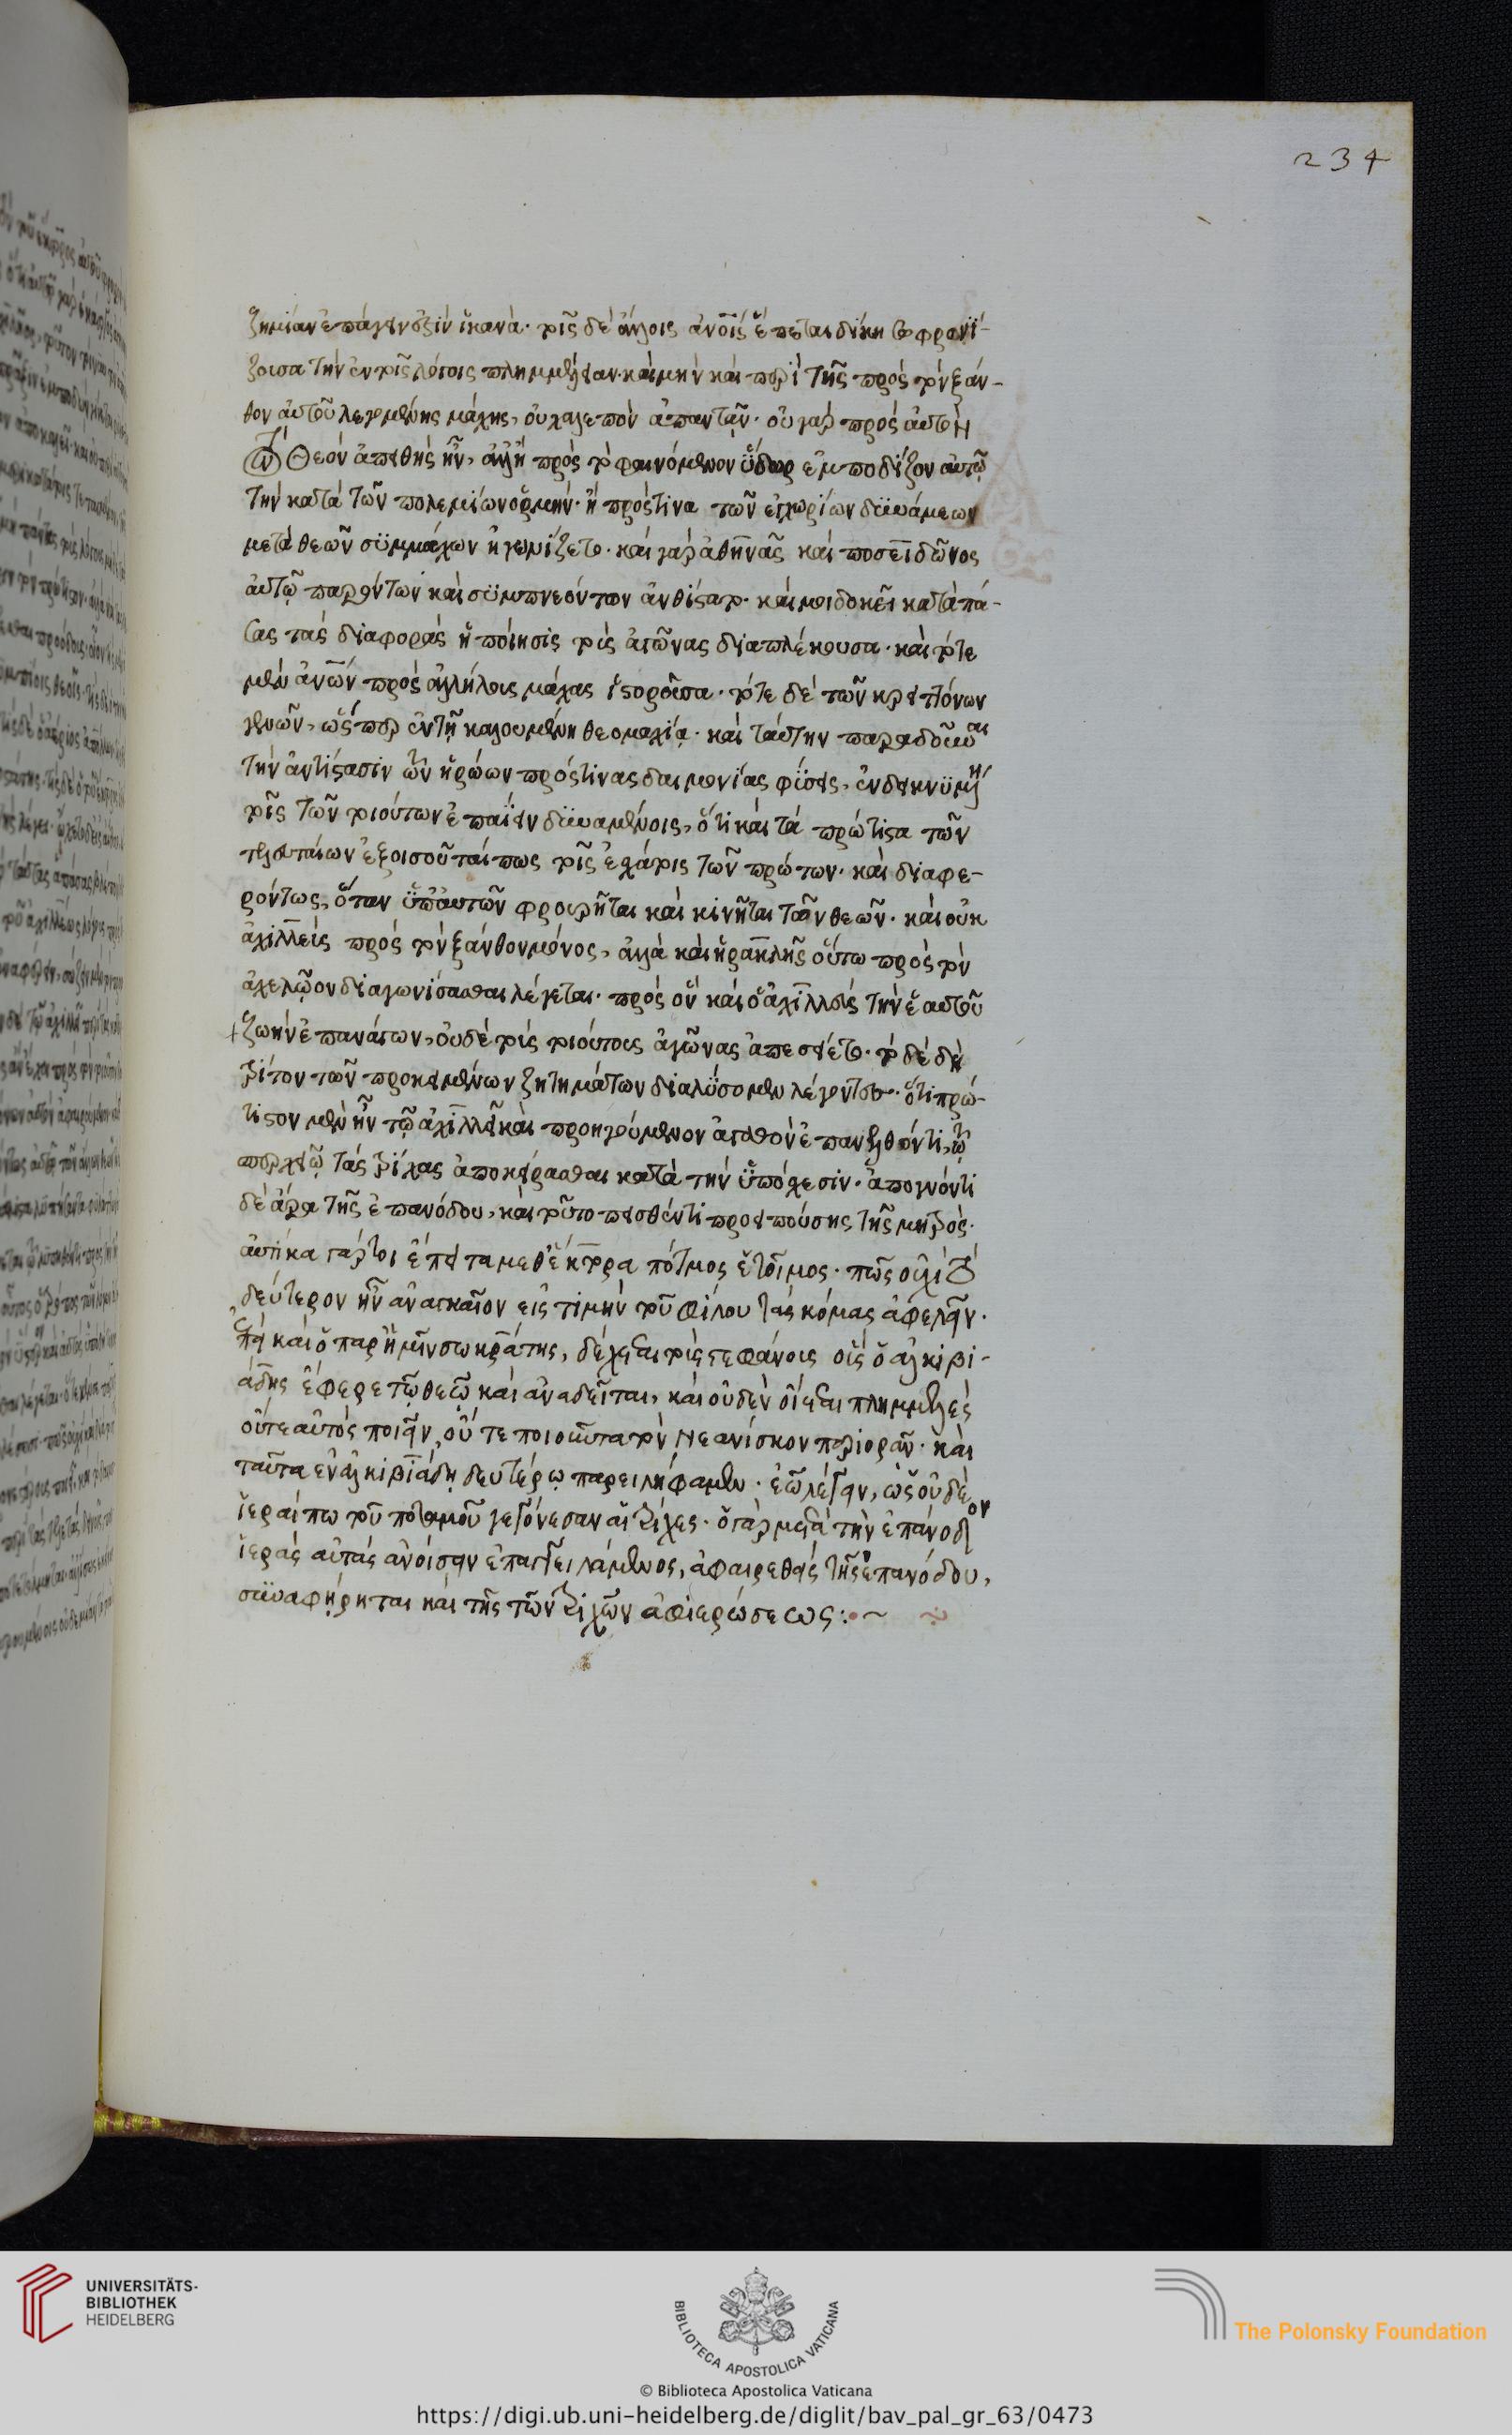 234
ζημίαν ἐπάγειν ἐστὶν ἱκανά· τοῖς δὲ ἄλλοις ἀνοις ἕπεται δίκη σωφρονί-
ζουσα τὴν ἐν τοῖς λόγοις πλημμέλειαν. καὶ μὴν καὶ περὶ τῆς πρὸς τὸν ξάν-
θον αὐτοῦ λεγομένης μάχης, οὐ χαλεπὸν ἀπαντᾶν· οὐ γὰρ πρὸς αὐτὸν
τὸν θεὸν ἀπειθὴς ἦν, ἀλλ' ἢ πρὸς τὸ φαινόμενον ὕδωρ ἐμποδίζον αὐτῷ
τὴν κατὰ τῶν πολεμίων ὁρμήν· ἢ πρός τινα τῶν ἐγχωρίων δυνάμεων
μετὰ θεῶν συμμάχων ἠγωνίζετο· καὶ γὰρ ἀθηνᾶς καὶ ποσειδῶνος
αὐτῷ παρόντων καὶ συμπνεόντων ἀνθίστατο. καί μοι δοκεῖ κατὰ πά-
σας τὰς διαφορὰς ἡ ποίησις τοὺς ἀγῶνας διαπλέκουσα· καὶ τότε
μὲν ἀνων πρὸς ἀλλήλους μάχας ἱστοροῦσα· τότε δὲ τῶν κρειττόνων
γενῶν, ὥσπερ ἐν τῇ καλουμένῃ θεομαχίᾳ· καὶ ταύτην παραδοῦναι
τὴν ἀντίστασιν τῶν ἡρώων πρός τινας δαιμονίας φύσεις, ἐνδεικνυμένη
τοῖς τῶν τοιούτων ἐπαΐειν δυναμένοις, ὅτι καὶ τὰ πρώτιστα τῶν
τελευταίων ἐξισοῦταί πως τοῖς ἐσχάτοις τῶν πρώτων· καὶ διαφε-
ρόντως, ὅταν ὑπ' αὐτῶν φρουρῆται καὶ κινῆται τῶν θεῶν. καὶ οὐκ
ἀχιλλεὺς πρὸς τὸν ξάνθον μόνος, ἀλλὰ καὶ ἡρακλῆς οὕτω πρὸς τὸν
ἀχελῷον διαγωνίσασθαι λέγεται. πρὸς ὃν καὶ ὁ ἀχιλλεὺς τὴν ἑαυτοῦ
ζωὴν ἐπανάγων, οὐδὲ τοὺς τοιούτους ἀγῶνας ἀπεσείετο. τὸ δὲ δὴ
τρίτον τῶν προκειμένων ζητημάτων διαλύσομεν λέγοντες. ὅτι πρώ-
τιστον μὲν ἦν τῷ ἀχιλλεῖ καὶ προηγούμενον ἀγαθὸν ἐπανελθόντι, τῷ
σπερχειῷ τὰς τρίχας ἀποκείρασθαι κατὰ τὴν ὑπόσχεσιν. ἀπογνόντι
δὲ ἄρα τῆς ἐπανόδου, καὶ τοῦτο πεισθέντι προειπούσης τῆς μητρός·
αὐτίκα γάρ τοι ἔπειτα μεθ' ἕκτορα πότμος ἑτοῖμος. πῶς οὐχὶ τὸ
δεύτερον ἦν ἀναγκαῖον εἰς τιμὴν τοῦ φίλου τὰς κόμας ἀφελεῖν.
ἐπεὶ καὶ ὁ παρ' ἡμῖν σωκράτης, δέχεται τοὺς στεφάνους οὓς ὁ ἀλκιβι-
άδης ἔφερε τῷ θεῷ καὶ ἀναδεῖται, καὶ οὐδὲν οἴεται πλημμελὲς
οὔτε αὐτὸς ποιεῖν, οὔτε ποιοῦντα τὸν νεανίσκον περιορᾶν. καὶ
ταῦτα ἐν ἀλκιβιάδῃ δευτέρῳ παρειλήφαμεν. ἐῶ λέγειν, ὡς οὐδὲ
ἱεραί πω τοῦ ποταμοῦ γεγόνεσαν αἱ τρίχες. ὁ γὰρ μετὰ τὴν ἐπάνοδον
ἱερὰς αὐτὰς ἀνοίσειν ἐπαγγειλάμενος, ἀφαιρεθεὶς τῆς ἐπανόδου,
συναφῄρηται καὶ τῆς τῶν τριχῶν ἀφιερώσεως:·~
UNIVERSITÄTS-
BIBLIOTHEK
HEIDELBERG
BIBLIOTECA APOSTOLICA VATICANA
The Polonsky Foundation
© Biblioteca Apostolica Vaticana
https://digi.ub.uni-heidelberg.de/diglit/bav_pal_gr_63/0473